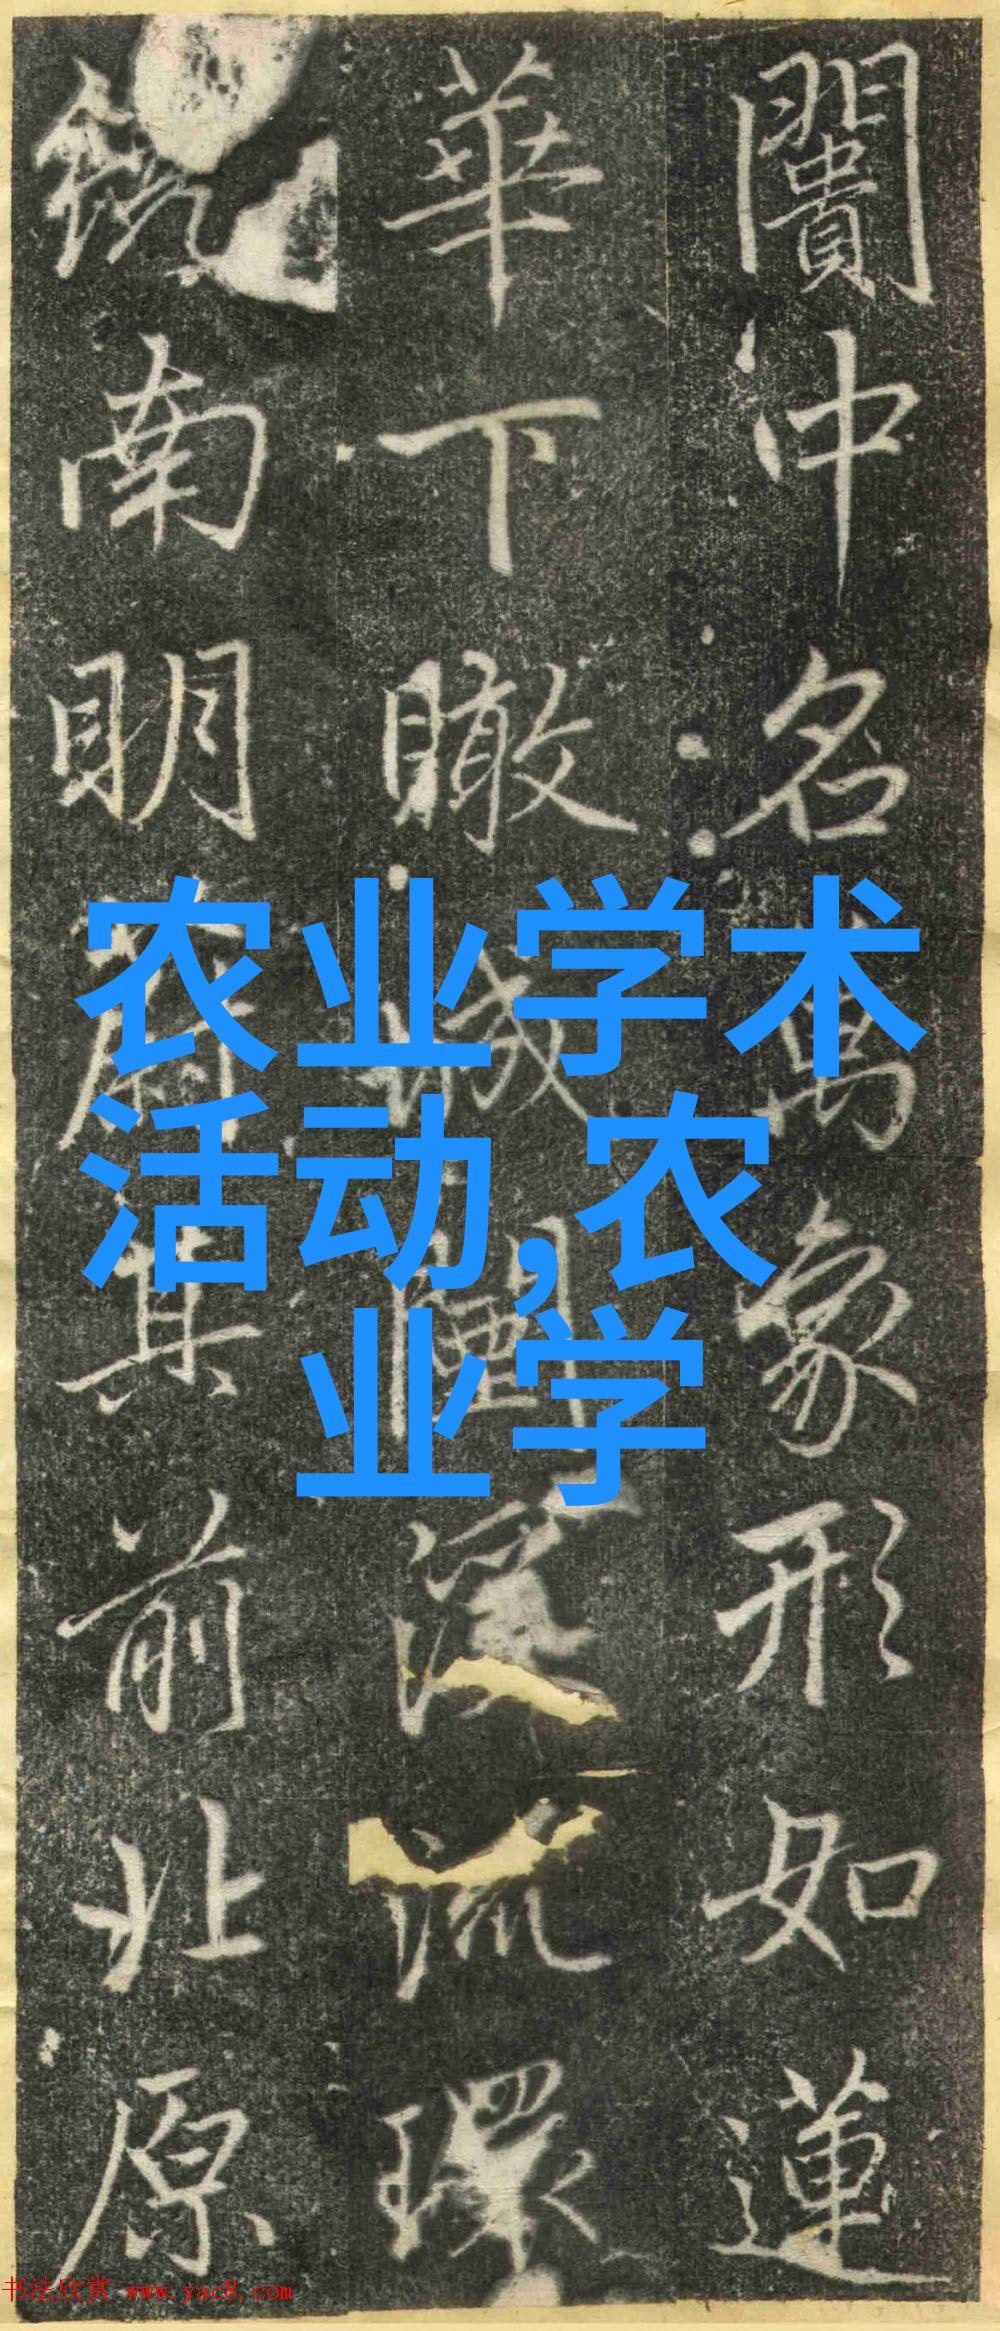 闠中名萬象形如蓮
華下瞰城闉流環
南明蔚其前北原
农业学术
活动,农
业学
书法欣赏 www.yac8.com